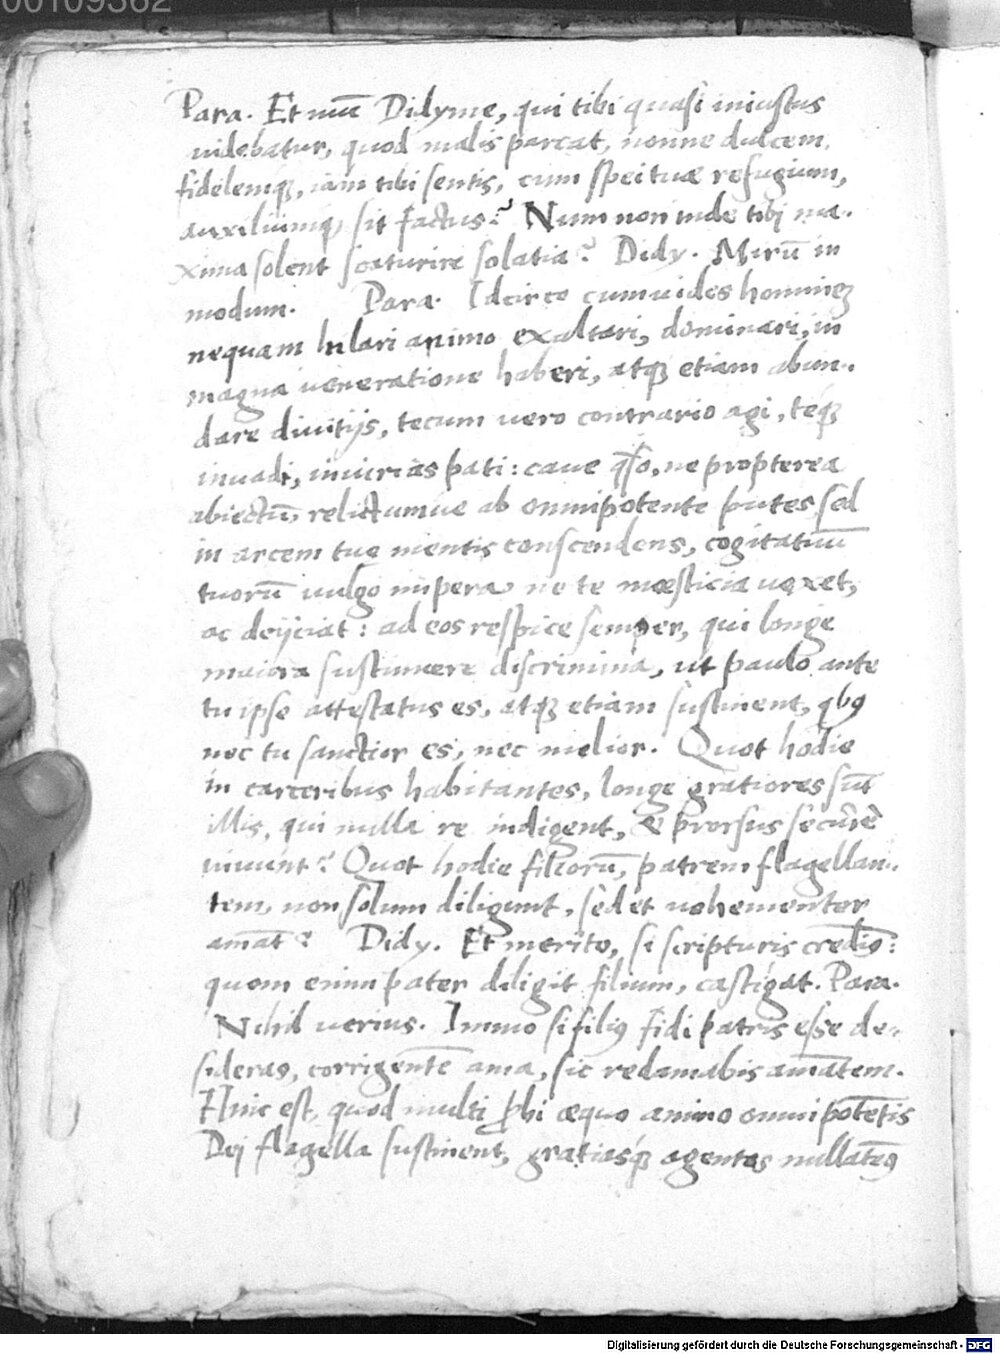 00109362
Para. Et nũc Didyme, qui tibi quasi iniustus
uidebatur, quod malis parcat, nonne dulcem,
fidelemq̃, iam tibi sentis, cum spei tuæ refugium,
auxiliumq̃ sit factus? Num non inde tibi ma-
xima solent scaturire solatia? Didy. Mirũ in
modum. Para. Idcirco cum uides hominẽ
nequam hilari animo exaltari, dominari, in
magna ueneratione haberi, atq̃ etiam abun-
dare diuitijs, tecum uero contrario agi, teq̃
inuadi, iniurias pati: caue q̃so, ne propterea
abiectũ, relictumue ab omnipotente putes sed
in arcem tuę mentis conscendens, cogitatiuũ
tuorũ uulgo impera ne te mæsticia uexet,
ac deijciat: ad eos respice semper, qui longe
maiora sustinuere discrimina, ut paulo ante
tu ipse attestatus es, atq̃ etiam sustinent, qbꝰ
nec tu sanctior es, nec melior. Quot hodie
in carceribus habitantes, longe gratiores sũt
illis, qui nulla re indigent, & prorsus secure
uiuunt? Quot hodie filiorũ, patrem flagellan-
tem, non solum diligunt, sed et uehementer
amãt? Didy. Et merito, si scripturis credimꝰ:
quem enim pater diligit filium, castigat. Para.
Nihil uerius. Immo si filiꝰ fidi patris esse de-
sideras, corrigentẽ ama, sic redamabis amãtem.
Hinc est, quod multi ꝓbi æquo animo omnipotẽtis
Dei flagella sustinent, gratiasq̃ agentes nullatenꝰ
Digitalisierung gefördert durch die Deutsche Forschungsgemeinschaft - DFG